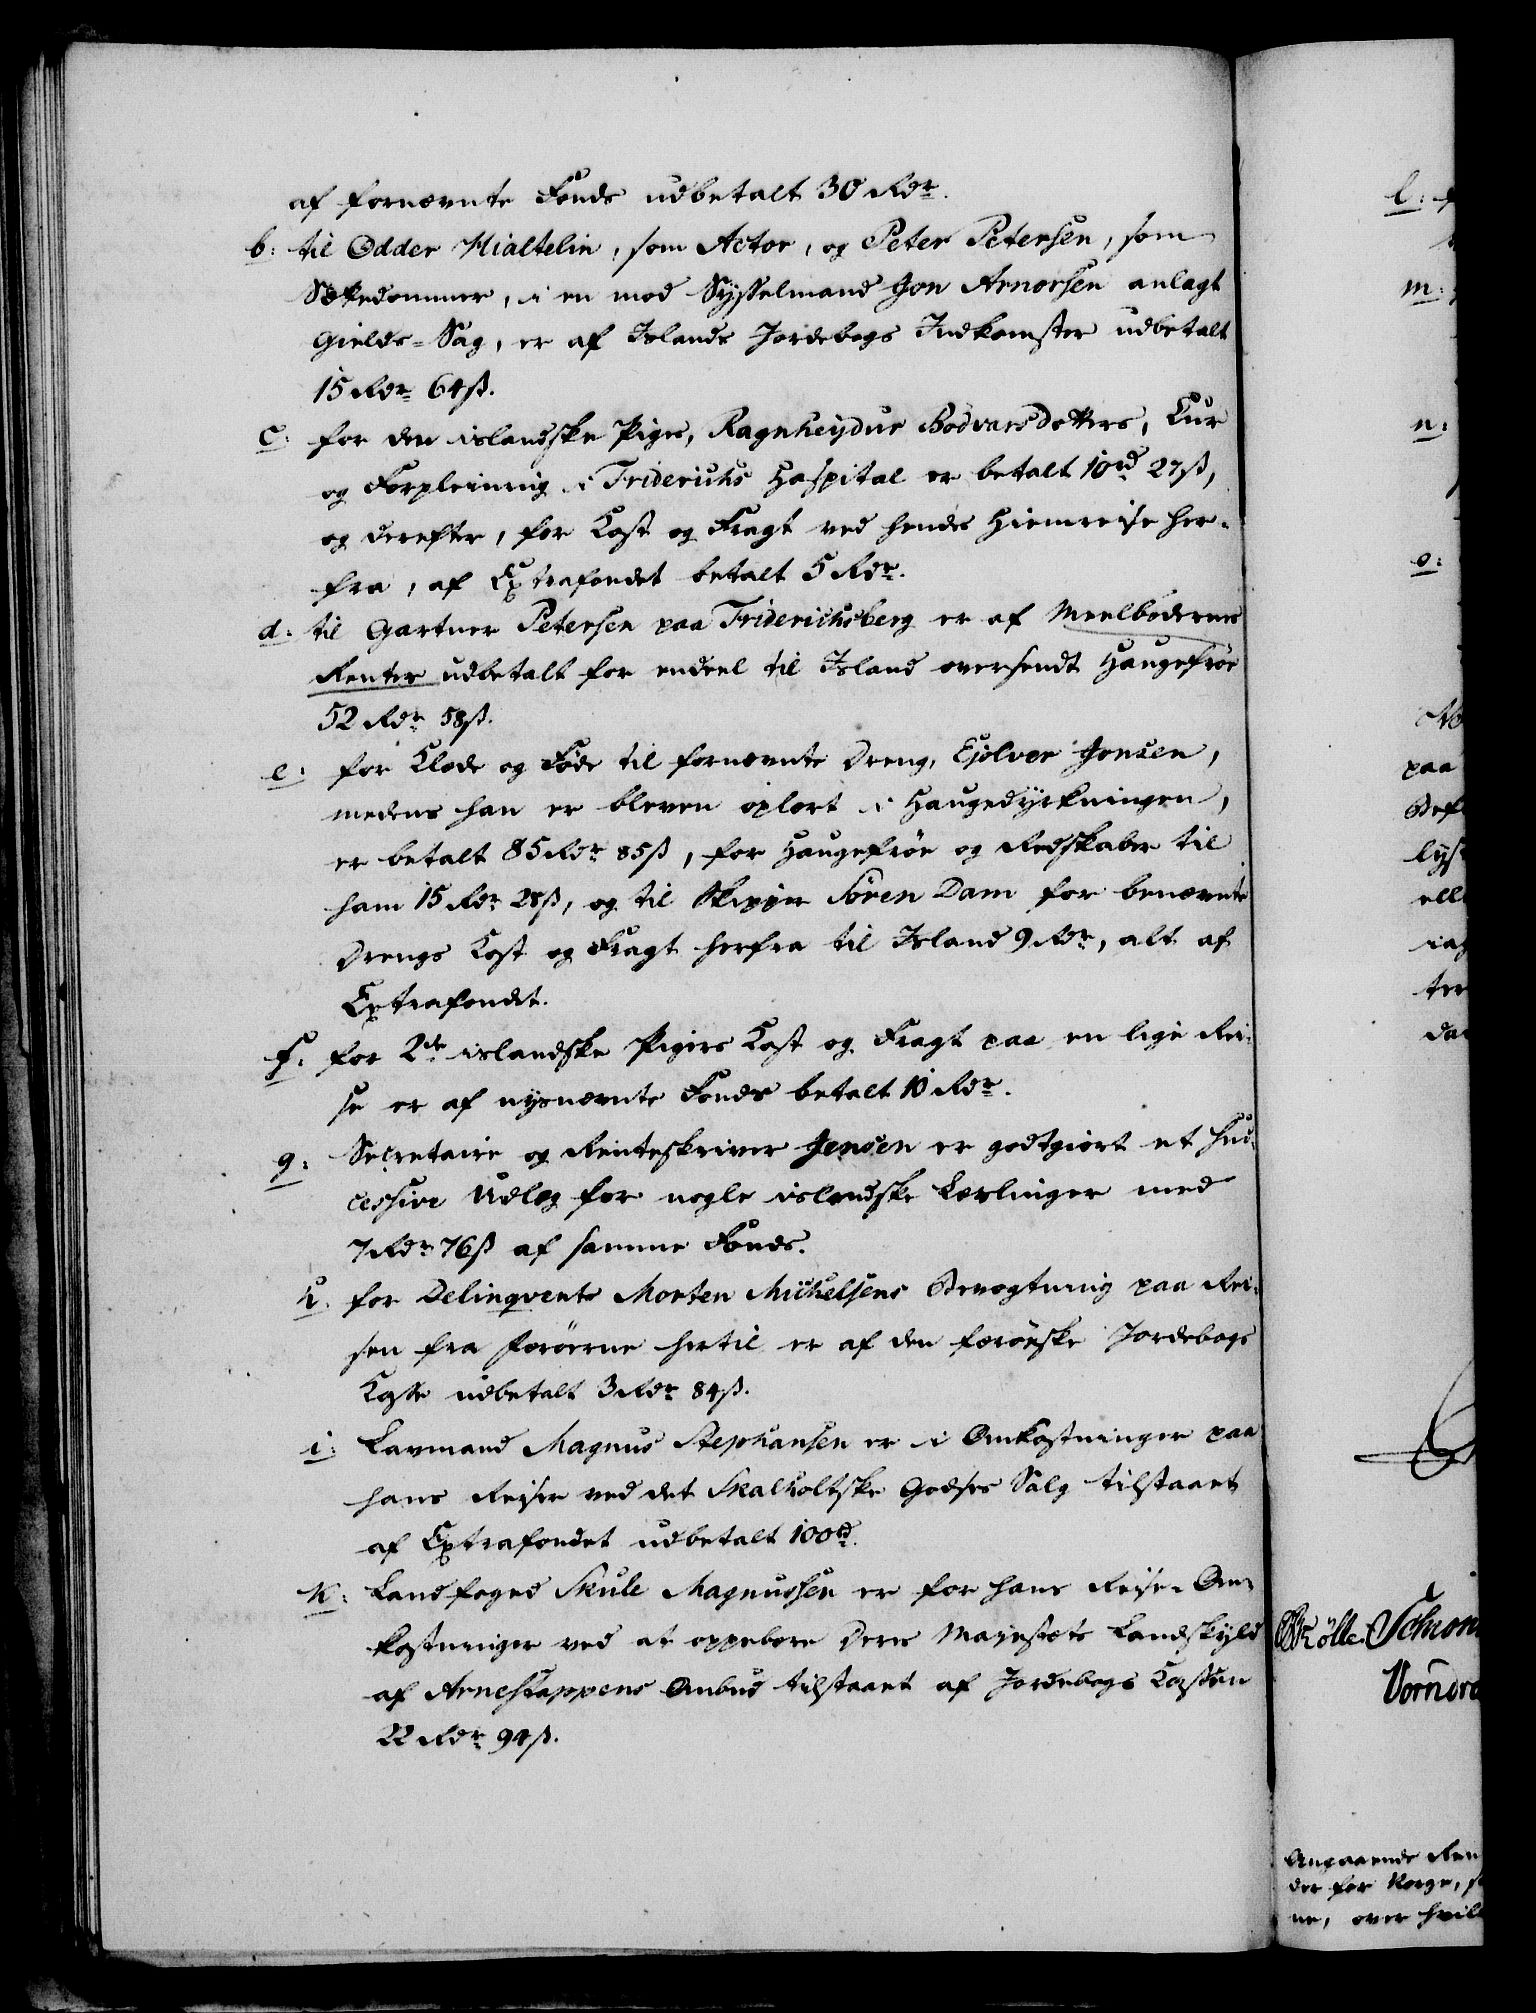 af fornævnte Fonds udbetalt 30 Rdr.
b: til Odder Hialtelin, som Actor, og Peter Petersen, som
Sættedommer, i en mod Sysselmand Jon Arnorsen anlagt
Gields-Sag, er af Islands Jordebogs Indkomster udbetalt
15 Rdr 64 ß.
c: for den islandske Piges, Ragnheydur Bödvarsdotters, Cur
og Forpleining i Friderichs Hospital er betalt 10 rd 27 ß,
og derefter, for Kost og Fragt ved hendes Hiemreise her-
fra, af Extrafondet betalt 5 Rdr.
d: til Gartner Petersen paa Friderichsberg er af Meelbødernes
Renter udbetalt for endeel til Island oversendt Haugefrøe
52 Rdr 58 ß.
e: for Klæde og Føde til fornævnte Dreng, Ejolver Jonsen,
medens han er bleven oplært i Haugedyrkningen,
er betalt 85 Rdr 85 ß, for Haugefrøe og Redskaber til
ham 15 Rdr 28 ß, og til Skipper Sören Dam for benævnte
Drengs Kost og Fragt herfra til Island 9 Rdr, alt af
Extrafondet.
f: for 2de islandske Pigers Kost og Fragt paa en lige Rei-
se er af nysnævnte Fonds betalt 10 Rdr.
g: Secretaire og Renteskriver Jensen er godtgiort et suc-
cessive Udlæg for nogle islandske Lærlinger med
7 Rdr 76 ß af samme Fonds.
h: for Delinqvents Morten Michelsens Bevogtning paa Rei-
sen fra Færöerne hertil er af den færöeske Jordebogs
Casse udbetalt 3 Rdr 84 ß.
i: Laugmand Magnus Stephansen er i Omkostninger paa
hans Reiser ved det Skalholtske Godses Salg tilstaaet
af Extrafondet udbetalt 100 rd.
k: Landfoged Skule Magnussen er for hans Reise-Om-
kostninger ved at oppebære Deres Majestæts Landskyld
af Arnestappens Ombud tilstaaet af Jordebogs Cassen
22 Rdr 94 ß.
l:
m:
n:
o:
paa
Bef
lys
ell
iag
ter
da
Schiøn
Vornøra
Angaaende Ren
der for Norge, s
ne, over hvil